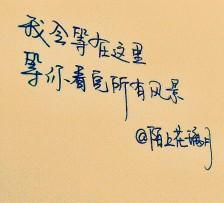 我会等在这里
等你看完所有风景
@陌上花满月